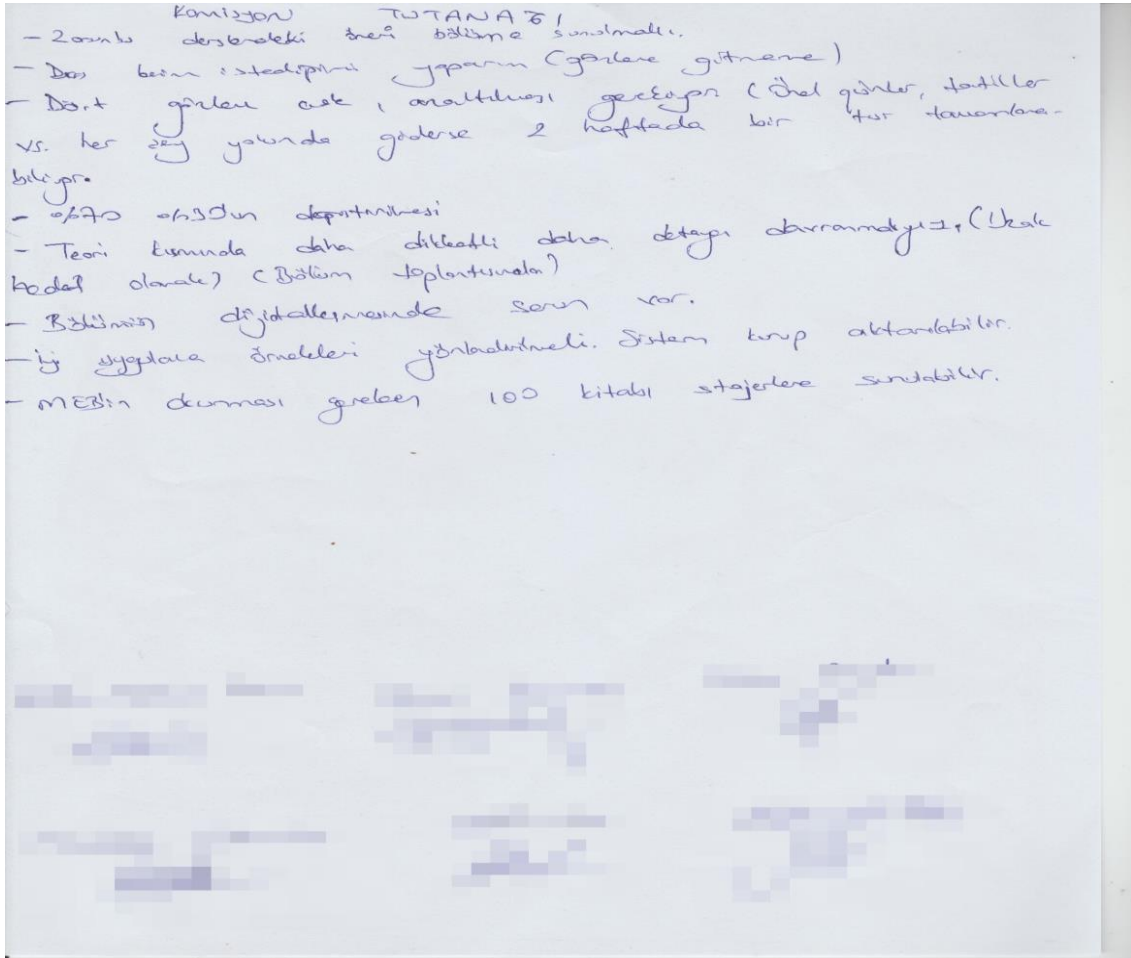 Komisyon TUTANAĞI
- Zorunlu derslerdeki öneri bölüme sunulmalı.
- Ders benim istediğimi yaparım (gözleme gitmeme)
- Dört gözlem çok, azaltılması gerekiyor (Özel günler, tatiller
vs. her şey yolunda giderse 2 haftada bir tur tamamlana-
biliyor.
- %70 %30'un değiştirilmesi
- Teori kısmında daha dikkatli daha detaycı davranmalıyız. (Uzak
hedef olarak) (Bölüm toplantısında)
- Bölümün dijitalleşmesinde sorun var.
- İyi uygulama örnekleri yönlendirilmeli. Sistem kurup aktarılabilir.
- MEB'in okunması gereken 100 kitabı stajerlere sunulabilir.